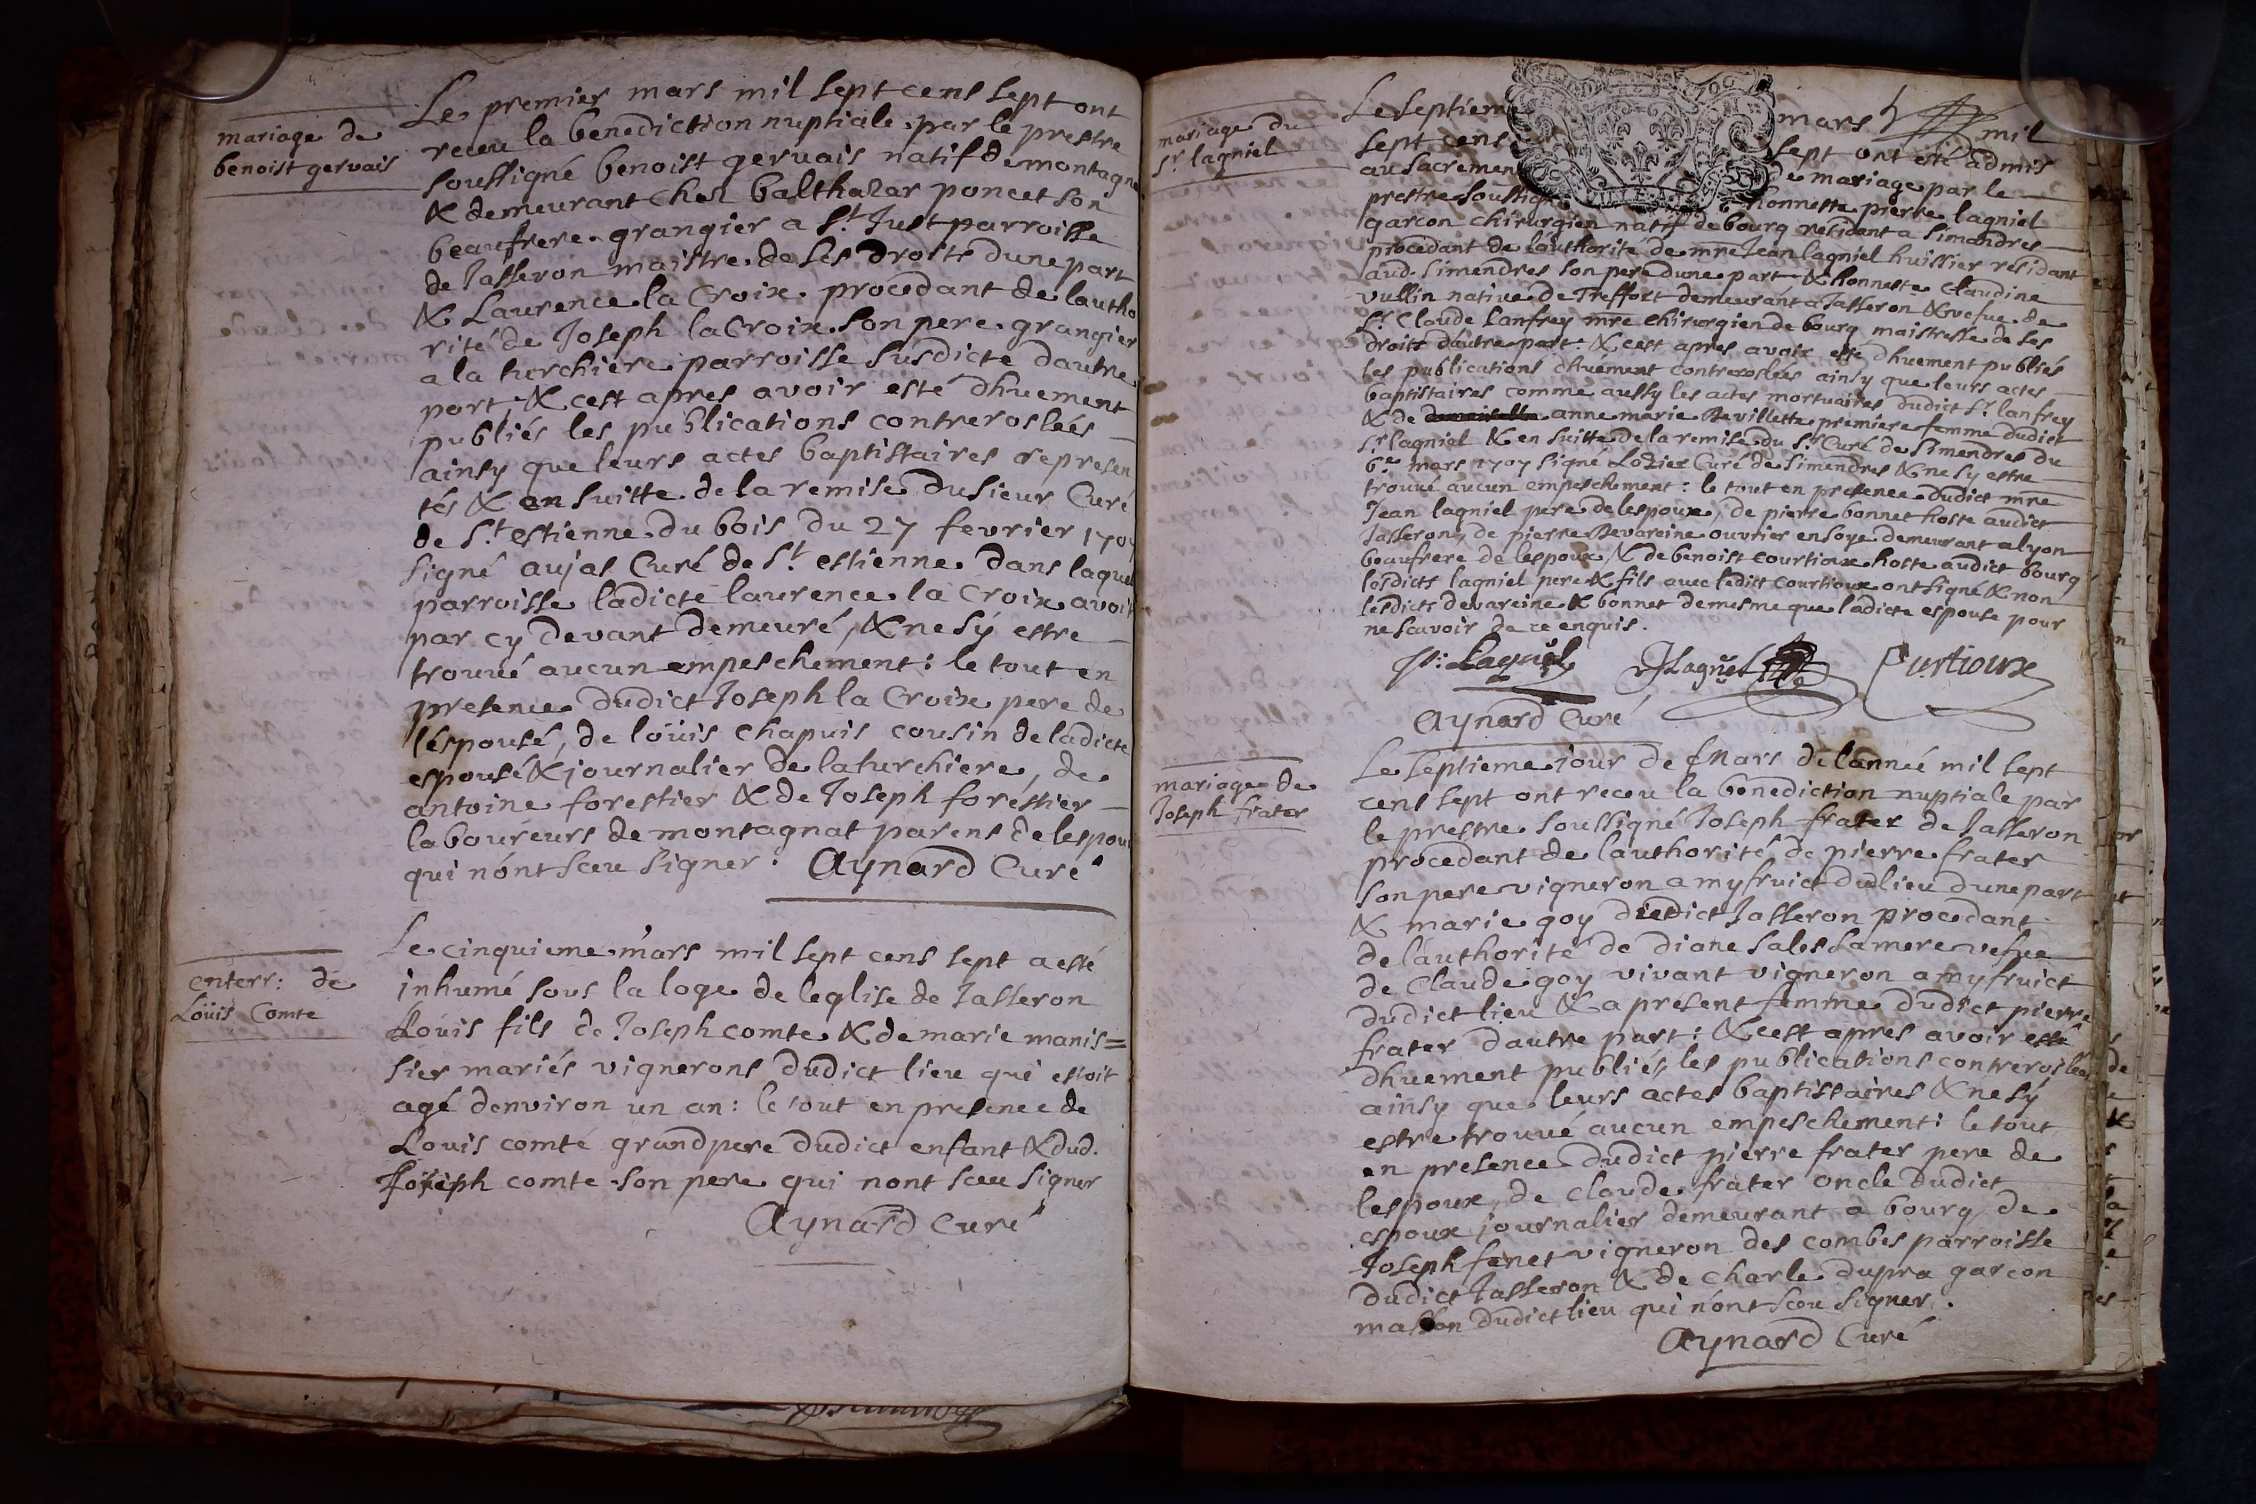 mariage de
benoist gervais
Le premier mars mil sept cens sept ont
receu la benediction nuptiale par le prestre
soussigné benoist gervais natif de montagna
& demeurant chez balthazar poncet son
beaufrere grangier a St Just parroisse
de Jasseron maistre de ses droits dune part
& Laurence la Croix procedant de lautho
rité de Joseph la Croix son pere grangier
a la turchiere parroisse susdicte dautre
part, & cest apres avoir esté dhuement
publiés les publications contreroslées
ainsy que leurs actes baptistaires represen
tés & en suitte de la remise du sieur Curé
de St estienne du bois du 27 fevrier 1707
signé aujas Curé de St estienne dans laquel
parroisse ladicte laurence la Croix avoit
par cy devant demeuré, & ne sy estre
trouué aucun empeschement: le tout en
presence dudict Joseph la Croix pere de
lespouse, de loüis chapuis cousin de ladicte
espouse & journalier de la turchiere, de
antoine forestier & de Joseph forestier
laboureurs de montagnat parens de lespoux
qui nont sceu signer. Aynard Curé
enterr: de
Loüis Comte
Le cinquieme mars mil sept cens sept a esté
inhumé sous la loge de leglise de Jasseron
Loüis fils de Joseph comte & de marie manis=
sier mariés vignerons dudict lieu qui estoit
agé denviron un an: le tout en presence de
Louis comte grand pere dudict enfant & dud.
Joseph comte son pere qui nont sceu signer
Aynard Curé
mariage du
Sr lagniel
Le septieme mars mil
sept cens sept ont esté admis
au sacrement de mariage par le
prestre soussigné honneste pierre lagniel
garcon chirurgien natif de bourg residant a simandres
procedant de lauthorité de mre Jean lagniel huissier residant
aud. simendres son pere dune part & honneste claudine
vullin native de Treffort demeurant a Jasseron & vefue de
Sr Claude Lanfrey mre chirurgien de bourg maistresse de ses
droits dautre part: & cest apres avoir esté dhuement publiés
les publications dhuement contreroslées ainsy que leurs actes
baptistaires comme aussy les actes mortuaires dudict Sr lanfrey
& de anne marie Revillette premiere femme dudict
Sr lagniel & en suitte de la remise du Sr Curé de Simendres du
6e mars 1707 signé Lozier Curé de Simendres & ne sy estre
trouué aucun empeschement: le tout en presence dudict mre
Jean lagniel pere de lespoux, de pierre bonnet hoste audict
Jasseron, de pierre Devareine ouvrier en soye demeurant a lyon
beaufrere de lespoux, & de benoist courtioux hoste audict bourg
lesdicts lagniel pere & fils avec ledict courtioux ont signé & non
lesdicts devareine & bonnet de mesme que ladicte espouse pour
ne scavoir de ce enquis.
p: Lagniel JLagniel Curtioux
Aynard Curé
mariage de
Joseph frater
Le septieme jour de Mars de lannée mil sept
cens sept ont receu la benediction nuptiale par
le prestre soussigné Joseph frater de Jasseron
procedant de lauthorité de pierre frater
son pere vigneron a myfruict dudict lieu dune part
& marie goy dudict Jasseron procedant
de lauthorité de diane sales sa mere vefue
de Claude goy vivant vigneron a myfruict
dudict lieu & a present femme dudict pierre
frater dautre part: & cest apres avoir esté
dhuement publiés les publications contreroslées
ainsy que leurs actes baptistaires & ne sy
estre trouué aucun empeschement: le tout
en presence dudict pierre frater pere de
lespoux, de claude frater oncle dudict
espoux journalier demeurant a bourg, de
Joseph fenet vigneron des combes parroisse
dudict Jasseron & de charle dupra garcon
masson dudict lieu qui nont sceu signer.
Aynard Curé